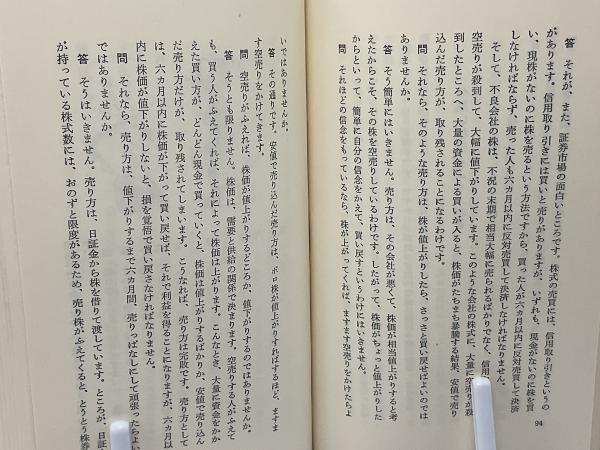 答　それが、また、証券市場の面白いところです。株式の売買には、信用取り引きというの
があります。信用取り引きには買いと売りがありますが、いずれも、現金がないのに株を買
い、現株がないのに株を売るという方法ですから、買った人が六カ月以内に反対売買して決済
しなければならず、売った人も六カ月以内に反対売買して決済しなければなりません。
そして、不良会社の株は、不況の末期で相当大幅に売られるばかりでなく、信用
空売りが殺到して、大幅に値下がりしています。このような会社の株式に、大量に空売りが殺
到したところへ、大量の資金による買いが入ると、株価がたちまち暴騰する結果、安値で売り
込んだ売り方が、取り残されることになるわけです。
問　それなら、そのような売り方は、株が値上がりしたら、さっさと買い戻せばよいのでは
ありませんか。
答　そう簡単にはいきません。売り方は、その会社が悪くて、株価が相当値上がりすると考
えたからこそ、その株を空売りしているわけです。したがって、株価がちょっと値上がりした
からといって、簡単に自分の信念をかえて、買い戻すというわけにはいきません。
問　それほどの信念をもっているなら、株が上がってくれば、ますます空売りをかけたらよ
94
いではありませんか。
答　その通りです。安値で売り込んだ売り方は、ボロ株が値上がりすればするほど、ますま
す空売りをかけてきます。
問　空売りがふえれば、株価が値上がりするどころか、値下がりするのではありませんか。
答　そうとも限りません。株価は、需要と供給の関係で決まります。空売りする人がふえて
も、買う人がふえてくれば、それによって株価は上がります。こんなとき、大量に資金をかか
えた買い方が、どんどん現金で買っていくと、株価は値上がりするばかりか、安値で売り込ん
だ売り方だけが、取り残されてしまいます。こうなれば、売り方は完敗です。売り方として
は、六カ月以内に株価が下がって買い戻せば、それで利益を得ることになりますが、六カ月以
内に株価が値下がりしないと、損を覚悟で買い戻さなければなりません。
問　それなら、売り方は、値下がりするまで六カ月間、売りっぱなしにして頑張ったらよい
ではありませんか。
答　そうはいきません。売り方は、日証金から株を借りて渡しています。ところが、日証金
が持っている株式数には、おのずと限度があるため、売り株がふえてくると、とうとう株券